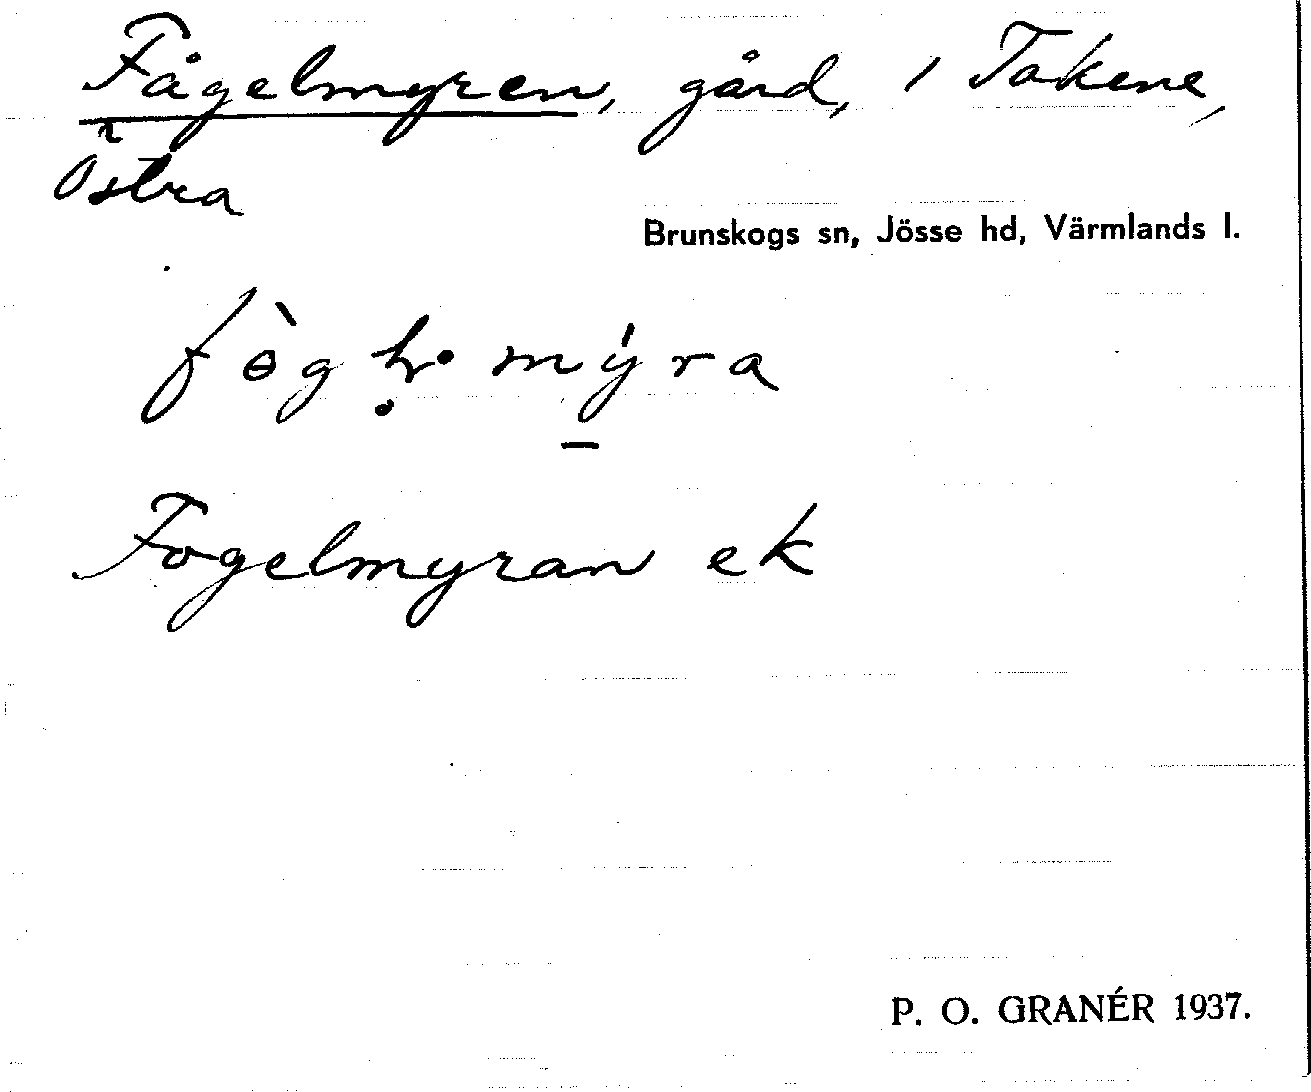 Fågelmyren, gård, 1 Takene,
Östra
Brunskogs sn, Jösse hd, Värmlands l.
mýra
Fogelmyran ek
P. O. GRANÉR 1937.